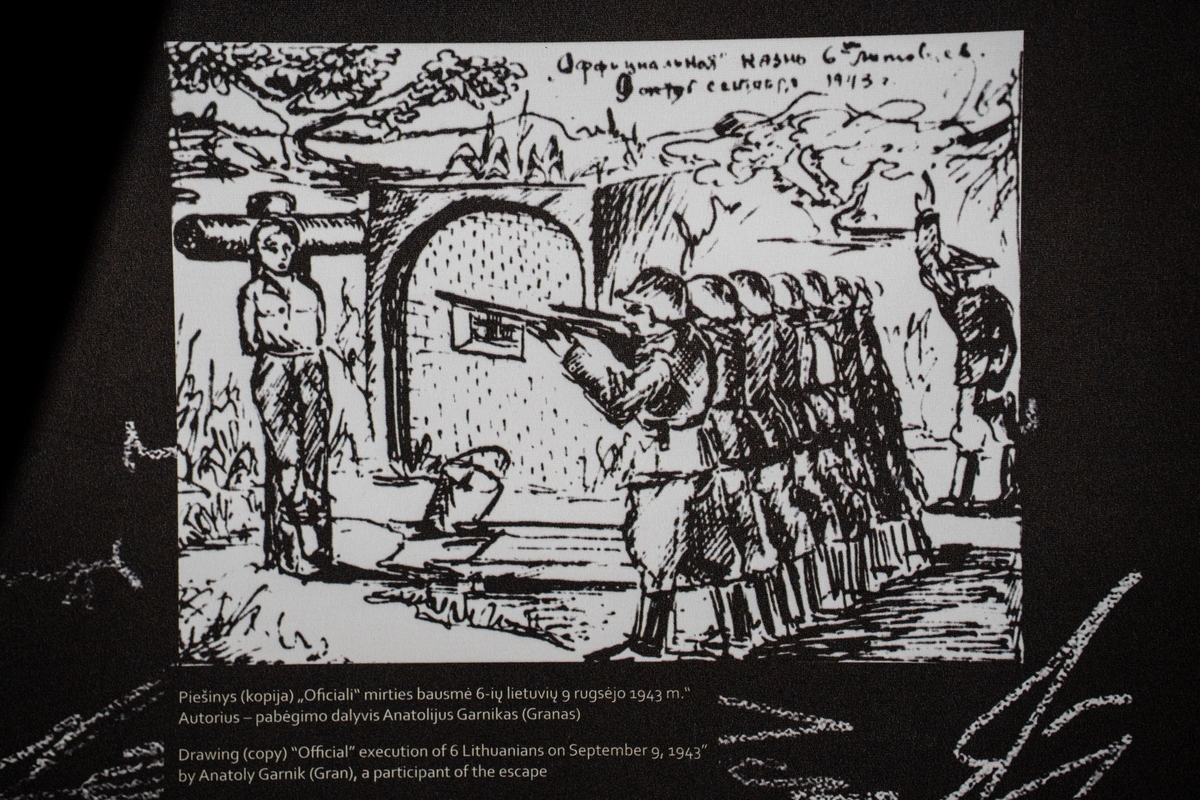 „Оффициальная" казнь 6ти литовцев.
9 сентября 1943 г.
Piešinys (kopija) „Oficiali“ mirties bausmė 6-ių lietuvių 9 rugsėjo 1943 m.“
Autorius – pabėgimo dalyvis Anatolijus Garnikas (Granas)
Drawing (copy) “Official” execution of 6 Lithuanians on September 9, 1943”
by Anatoly Garnik (Gran), a participant of the escape